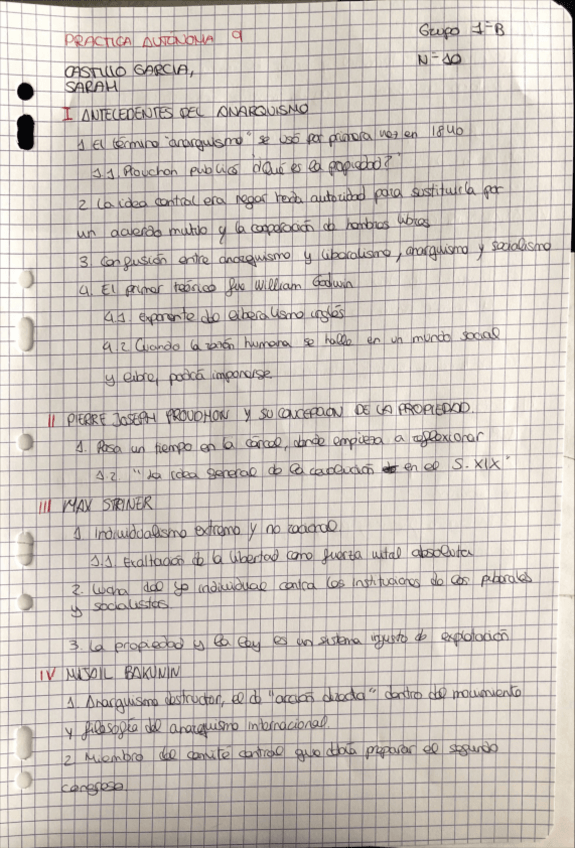 PRACTICA AUTÓNOMA 9
Grupo 1ºB
Nº 10
CASTILLO GARCIA,
SARAH
I ANTECEDENTES DEL ANARQUISMO
1 El término "anarquismo" se usó por primera vez en 1840
1.1. Prouchon publicó "¿Qué es la propiedad?"
2 La idea central era negar toda autoridad para sustituirla por
un acuerdo mutuo y la cooperación de hombres libres
3. Confusión entre anarquismo y liberalismo, anarquismo y socialismo
4. El primer teórico fue William Godwin
4.1. exponente de liberalismo inglés
4.2 Cuando la razón humana se halle en un mundo social
y libre, podrá imponerse
II PIERRE JOSEPH PROUDHON Y SU CONCEPCION DE LA PROPIEDAD.
1. Pasa un tiempo en la cárcel, donde empieza a reflexionar
1.2. "La idea general de la revolución en el S. XIX"
III MAX STRINER
1 Individualismo extremo y no racional
1.1 Exaltación de la libertad como fuerza vital absoluta
2. Lucha del yo individual contra las instituciones de los liberales
y socialistas
3. La propiedad y la ley es un sistema injusto de explotación
IV MIJAIL BAKUNIN
1. Anarquismo destructor, el de "acción directa" dentro del movimiento
y filosofía del anarquismo internacional.
2 Miembro del comité central que debía preparar el segundo
congreso.